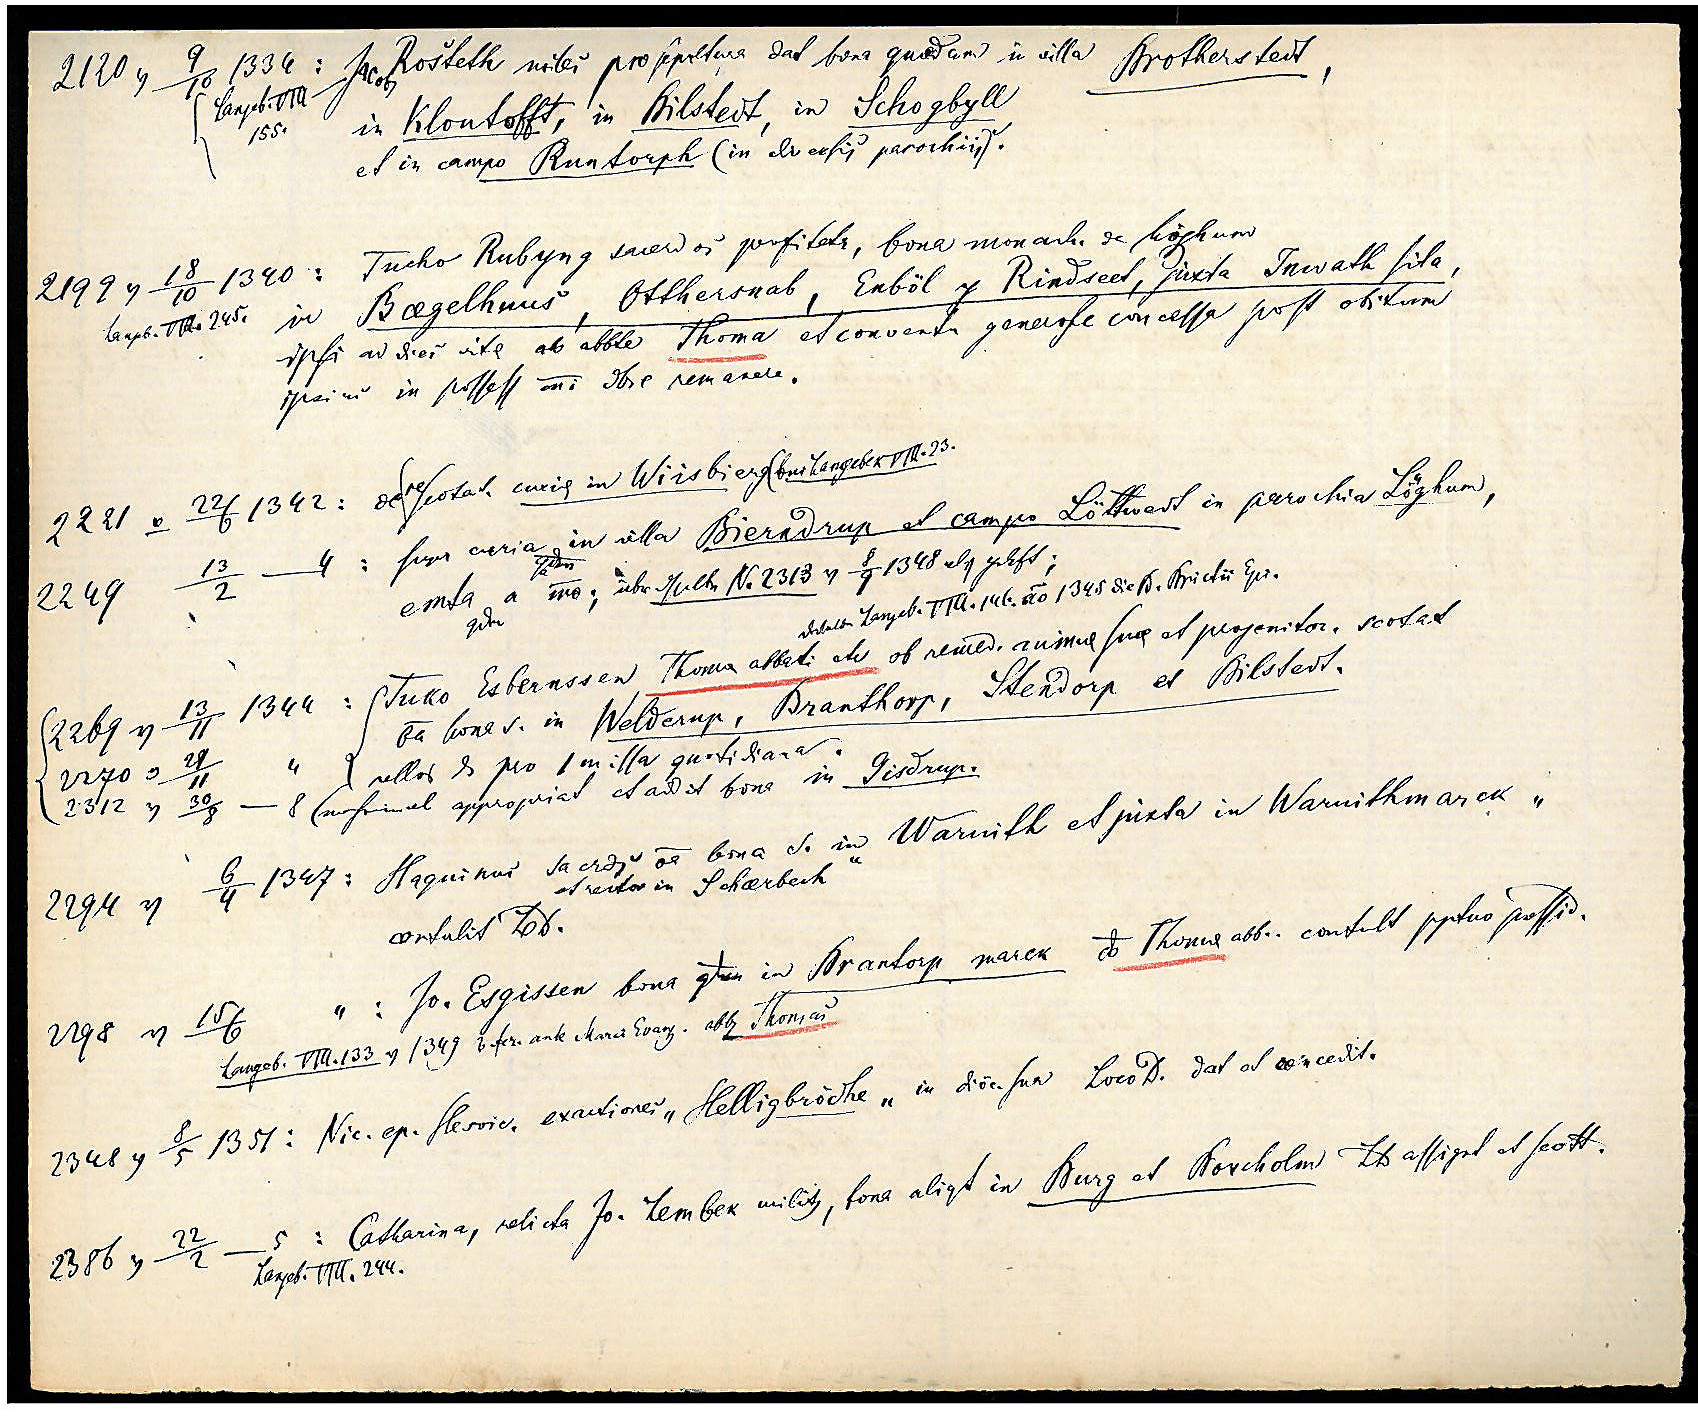 2120 v 9/10 1334 : Jacob Rosteth miles pro sepultura dat bona quædam in villa Brotherstedt,
Langeb. VIII 155.
in Kloutofft, in Bilstedt, in Schogbyll
et in campo Runtorph (in diversis parochiis).
2199 v 18/10 1340 : Tucho Rubyng sacerdos profitetr, bona monach. de Löghum
Langeb. VIII. 245.
in Bægelhuus, Otthersnab, Enböl & Rindseet, juxta Inwath sita,
ipsi ad dies vitæ ab abbte Thoma et conventu generose concessa post obitum
ipsius in possess mi dbre remanere.
2221 v 22/6 1342 : de scotat. curiæ in Wiisbierg (bei Langebek VIII. 23.
2249 13/2 — 4 : super curia in villa Bierndrup et campo Löttwedt in parochia Löghum,
emta a N. 2313 v 8/9 1348
Langeb. VIII. 146. ão 1345 die B. Brictii Epi.
2269 v 13/11 1344 : Tuko Esbernssen Thomæ abbati ob remed. animæ suæ et progenitor. scotat
bona s. in Welderup, Branthorp, Stendorp et Bilstedt.
2270 v 29/11 " pro 1 missa quotidiana.
2312 v 30/8 — 8 appropriat et addit bona in Gisdrup.
2294 v 6/4 1347 : Haquinus sacerds bona s. in Warnith et juxta in Warnithmarck "
et rector in Schærbech
contulit LoD.
2298 v 15/6 " : Jo. Esgissen bona in Brantorp marck Thomæ abb. contult pptuo possid.
Langeb. VIII. 133 v 1349 fer. ante Marci Evang. abb Thomas
2348 v 8/5 1351 : Nic. ep. slesvic. exactiones „Helligbrödhe„ in diöc. sua LocoD. dat et concedit.
2386 v 22/2 — 5 : Catharina, relicta Jo. Lembek milit, bona aliqt in Burg et Borcholm assignt et scott.
Langeb. VIII. 244.